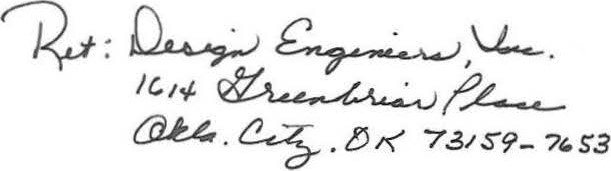 Ret: Design Engineers, Inc.
1614 Greenbriar Place
Okla. City, OK 73159-7653